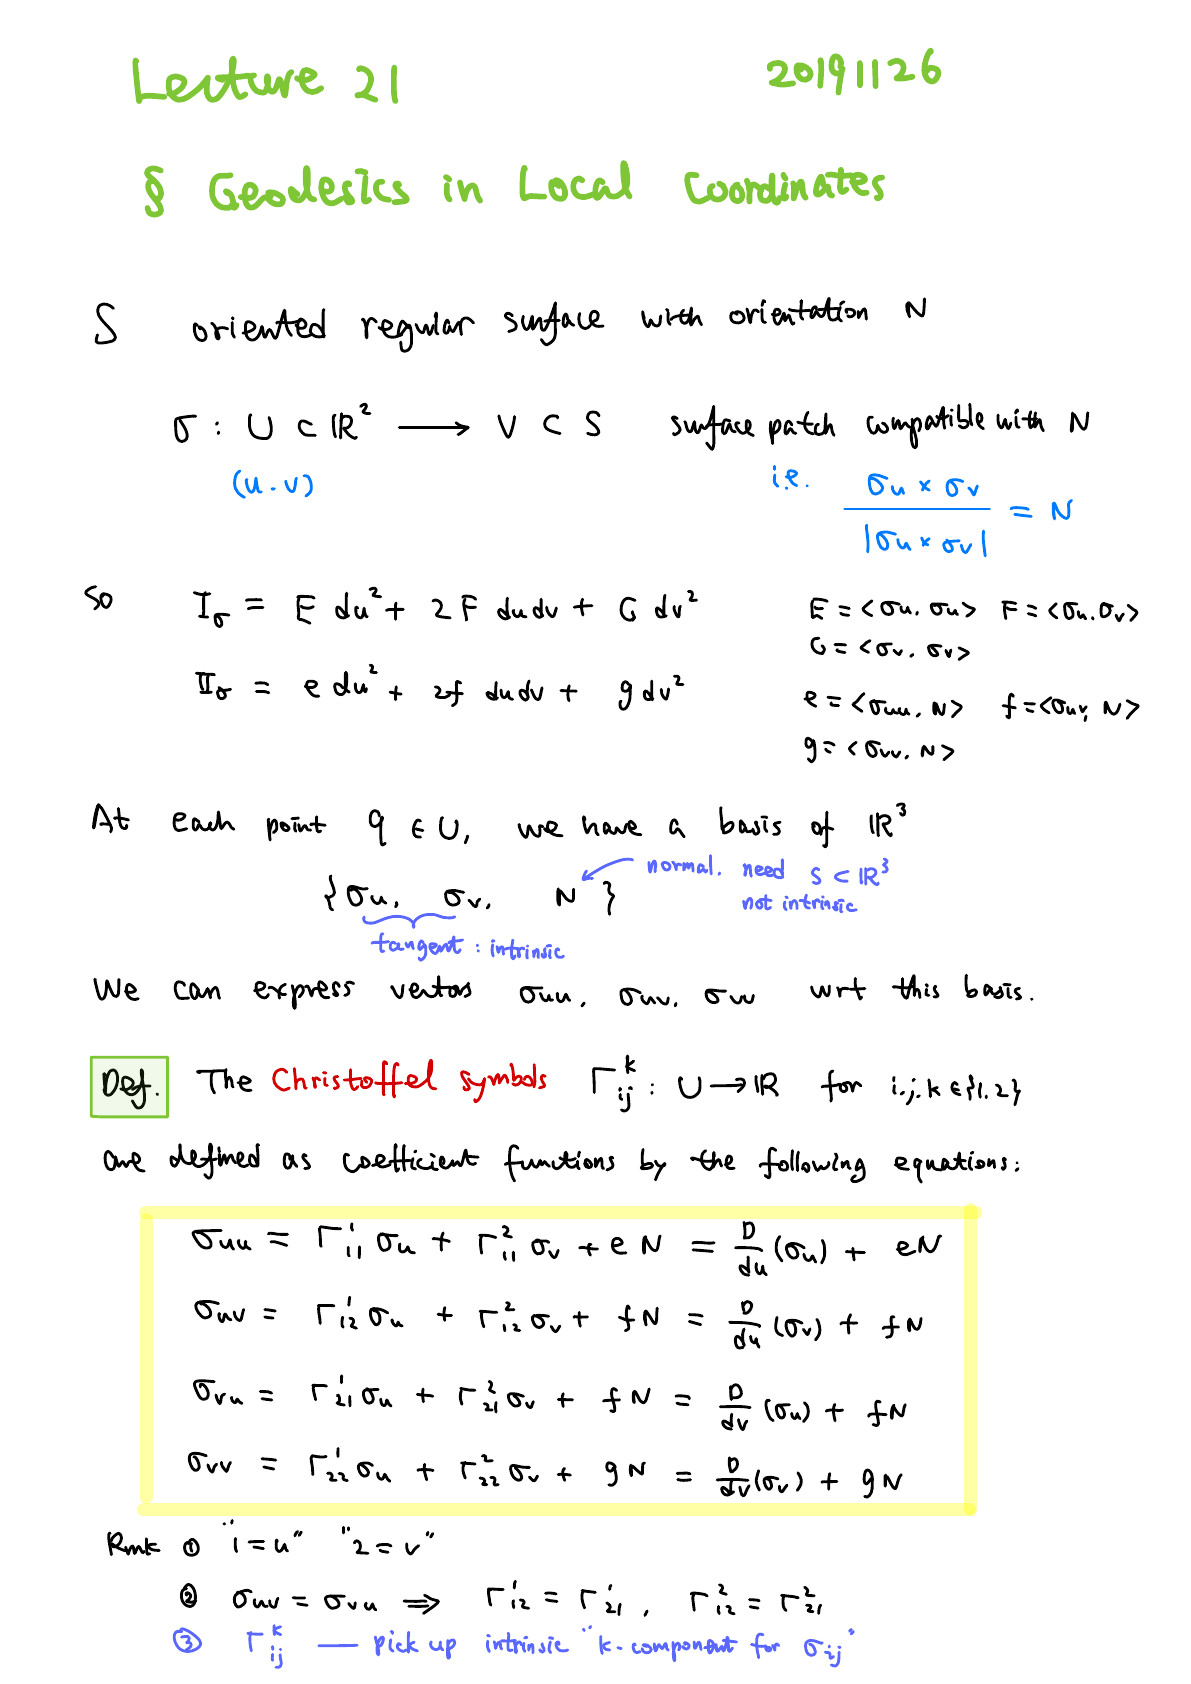 Lecture 21 20191126
§ Geodesics in Local Coordinates
S oriented regular surface with orientation N
σ : U ⊂ ℝ² ⟶ V ⊂ S surface patch compatible with N
(u.v) i.e. σu × σv / |σu × σv| = N
So Iσ = E du² + 2F dudv + G dv² E = <σu. σu> F = <σu.σv>
G = <σv. σv>
IIσ = e du² + 2f dudv + g dv² e = <σuu. N> f = <σuv, N>
g = <σvv. N>
At each point q ∈ U, we have a basis of ℝ³
{σu, σv, N} normal. need S ⊂ ℝ³
not intrinsic
tangent : intrinsic
We can express vectors σuu, σuv, σvv wrt this basis.
Def. The Christoffel symbols Γᵢⱼᵏ : U → ℝ for i.j.k ∈ {1.2}
are defined as coefficient functions by the following equations:
σuu = Γ₁₁¹ σu + Γ₁₁² σv + e N = D/du (σu) + eN
σuv = Γ₁₂¹ σu + Γ₁₂² σv + f N = D/du (σv) + f N
σvu = Γ₂₁¹ σu + Γ₂₁² σv + f N = D/dv (σu) + f N
σvv = Γ₂₂¹ σu + Γ₂₂² σv + g N = D/dv (σv) + g N
Rmk ① "1 = u" "2 = v"
② σuv = σvu ⟹ Γ₁₂¹ = Γ₂₁¹ , Γ₁₂² = Γ₂₁²
③ Γᵢⱼᵏ — pick up intrinsic "k-component for σij"